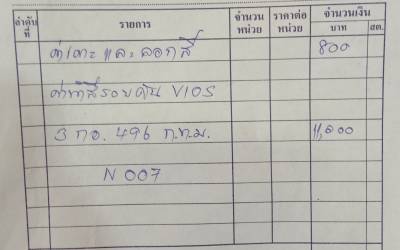 ลำดับที่ รายการ จำนวนหน่วย ราคาต่อหน่วย จำนวนเงิน
บาท สต.
ค่าเคาะ และ ลอกสี 800
ค่าทำสีรอบคัน VIOS
3 กอ. 496 ก.ท.ม. 11,000
N 007